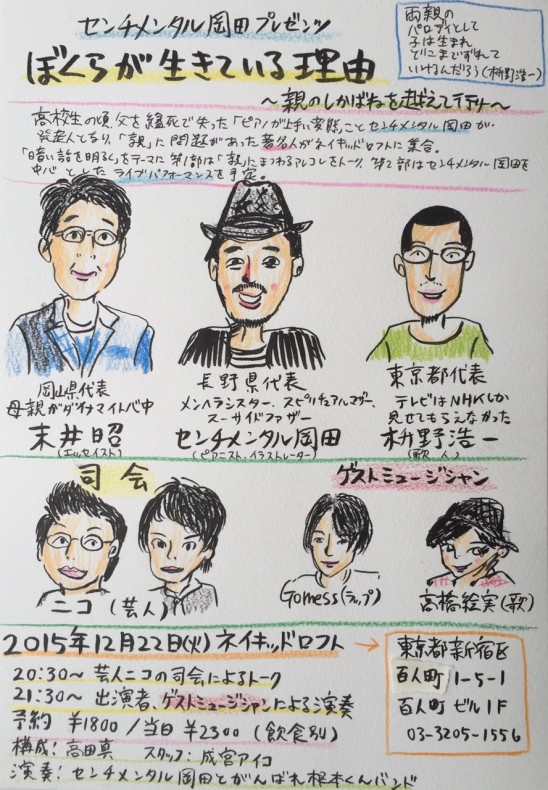 センチメンタル岡田プレゼンツ
ぼくらが生きている理由
〜親のしかばねを越えて行け〜
両親の
パロディとして
子は生まれ
どこまでずれて
いけるんだろう(枡野浩一)
高校生の頃、父を縊死で失った「ピアノが上手い変態」ことセンチメンタル岡田が
発起人となり、「親」に問題があった著名人がネイキッドロフトに集合。
「暗い話を明るく」をテーマに第1部は「親」にまつわるアルコレをトーク。第2部はセンチメンタル岡田を
中心としたライブパフォーマンスを予定。
岡山県代表
母親がダイナマイト心中
末井昭
(エッセイスト)
長野県代表
メンヘラシスター、スピリチュアルマザー、
スーサイドファザー
センチメンタル岡田
(ピアニスト、イラストレーター)
東京都代表
テレビはNHKしか
見せてもらえなかった
枡野浩一
(歌人)
司会
ニコ(芸人)
ゲストミュージシャン
Gomess(ラップ)
高橋絵実(歌)
2015年12月22日(火)ネイキッドロフト
20:30〜 芸人ニコの司会によるトーク
21:30〜 出演者、ゲストミュージシャンによる演奏
予約 ¥1800/当日 ¥2300(飲食別)
構成:高田真 スタッフ:成宮アイコ
演奏:センチメンタル岡田とがんばれ根本くんバンド
東京都新宿区
百人町 1-5-1
百人町ビル1F
03-3205-1556